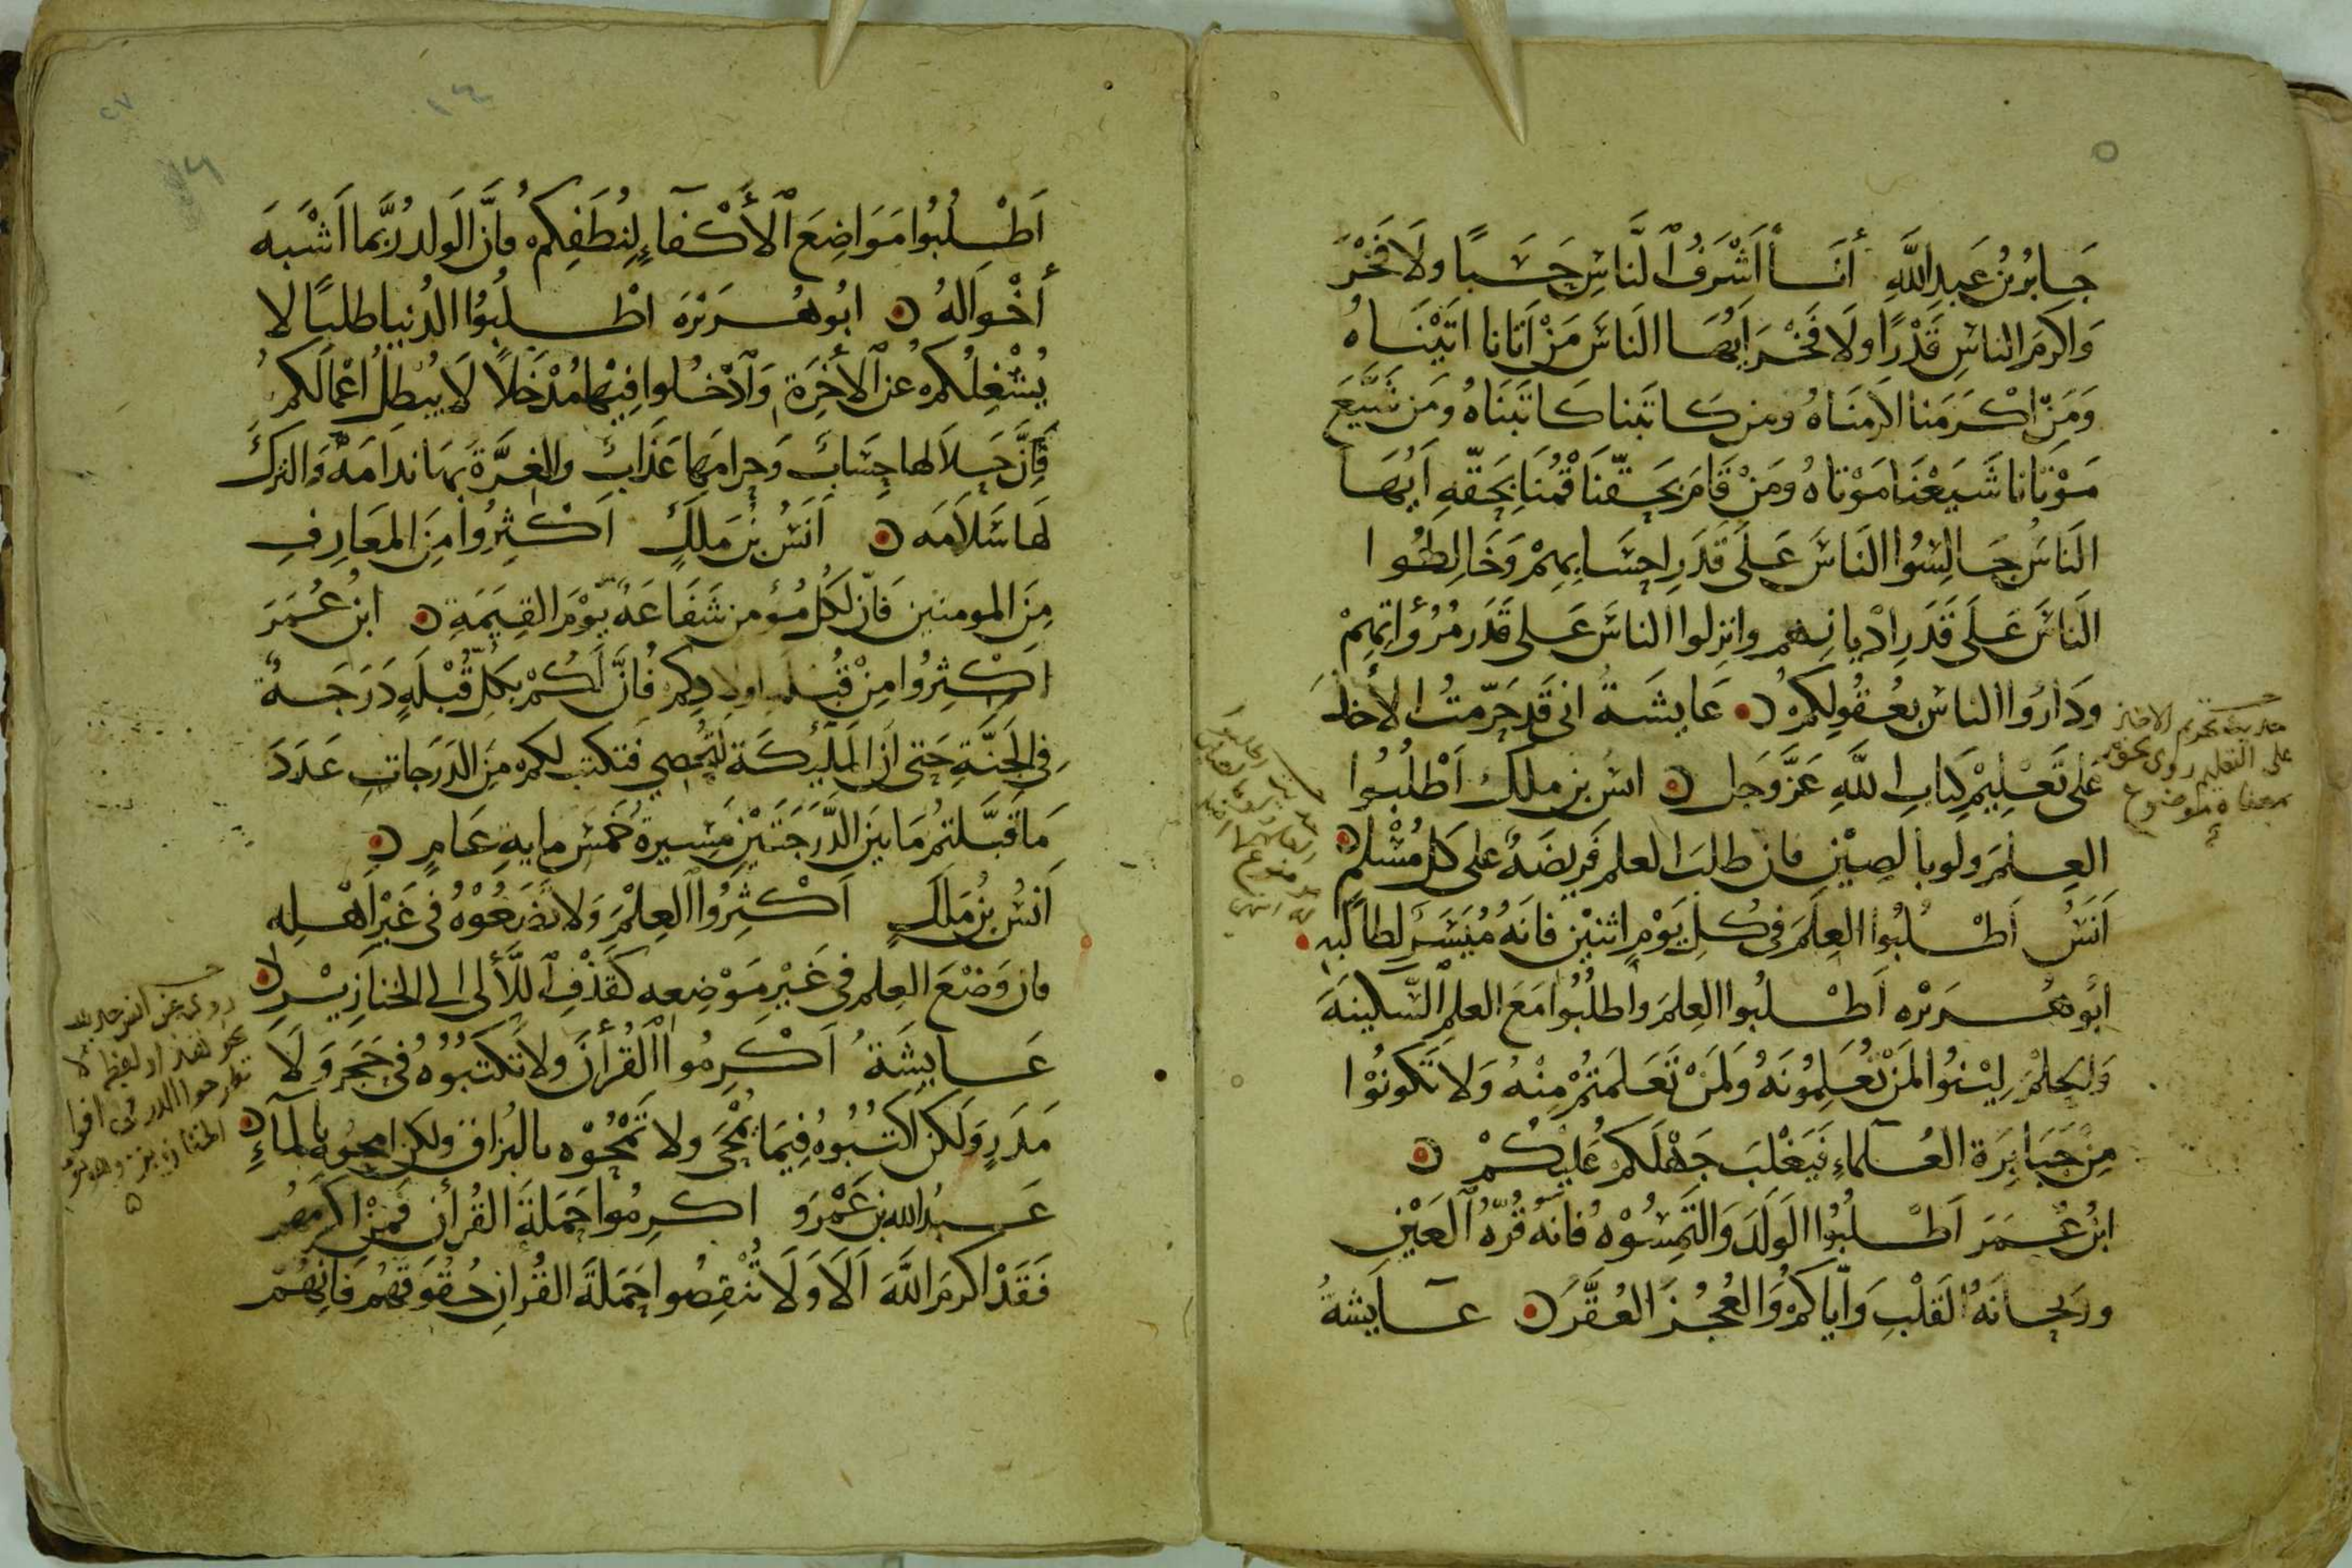 جَابرُ بنُ عَبدِ اللَّهِ أنَا أشْرَفُ ٱلنَّاسِ حَسَبًا ولَا فَخْرَ
وَاكرَم الناسِ قَدْرًا ولَا فَخْرَ ايُّهَا النَاسَ مَنْ اَتانا اتَيْنَاهُ
وَمَنْ اكْرَمَنا اكرمنَاهُ ومن كاتَبنا كاتَبنَاهُ ومَن شَيَّعَ
مَوْتانا شَيَعْنَا مَوْتاهُ ومَنْ قَامَ بحَقّنَا قُمْنَا بحَقّهِ اَيُهَا
النَاسُ جَالِسُوا النَاسَ عَلَى قَدَرِ احسَابِهِمْ وَخَالِطُوا
الَناسَ عَلَى قَدَرِ ادْيانِهم وانزِلوا الناسَ عَلى قَدَر مُرُؤاتِهِمْ
ودَارُوا الناسَ بعُقُولِكمُ عَايشَةُ انى قَد حَرّمتُ الأخذَ
عَلى تَعْلِيْمِ كتَابِ اللَّهِ عَزَّ وَجَل انسُ بن ملك اَطْلُبُوا
العِلمَ ولو بالصِيْنِ فان طلبَ العلم فَرِيضَةٌ على كل مُسْلم
اَنَسُ اَطْلُبُوا العِلَمَ فى كُلِ يَوْمِ اثنيْن فانَهُ مُيَسَّر لطالبِه
ابُو هُرَيْره اَطْلبُوا العِلمَ واطلُبُوا مَعَ العلمِ السَّكينَةَ
وَالحِلمْ لِيْنوُا لمَنْ تُعَلِمُونَهُ وَلمَنْ تَعَلمَتُمْ مِنْهُ وَلا تَكونُوا
مِنْ جَبَابِرَة العُلماءِ فَيَغْلبَ جَهْلَكم عَليكُمْ
ابنُ عُمَرَ اَطْلبُوا الوَلَدَ وَالتَمِسُوْهُ فانهُ قُرّهُ ٱلعَيْنِ
وريحانَهُ القَلْبِ وَايّاكمْ وَالعُجُزَ العُقَّرَ عَايشةُ
حديث تحريم الاخذ
على التعليم روى نحو
معناه موضوع
اَطْلبُوا مَوَاضِعَ ٱلأَكْفآءِ لِنُطَفِكمُ فانَّ الوَلد رُبَّما اَشْبَهَ
أخْوَالهُ ابُو هُرَيْرَه اطْلبُوُا الدُنيا طلبًا لا
يُشْغِلُكمُ عن ٱلأخِرَة وَٱدْخلوا فِيْها مُدْخَلاً لَا يُبْطلُ اعْمَالَكمُ
فَإنَّ حَلَالها حِسَابٌ وَحرامهَا عَذَابٌ والغِرَّةَ بهَا نَدامَةٌ وَالتركَ
لهَا سَلاَمَه اَنَسُ بنُ مَلكٍ اَكْثِرُوا مِنَ المَعَارِفِ
مِنَ المومنين فَانّ لكُل مُؤمن شَفَاعَةً يَّوْمَ القِيمَةِ ابنُ عُمَرَ
اكْثِرُوا مِنْ قُبْلةِ اولادِكم فُانَّ لَكُمْ بكُلّ قُبْلَهٍ دَرَجَةً
فِى الجَنَّةِ حَتى اَن المَلَئِكَةَ لَتُحصِي فتكتب لكم مِنَ الدَرَجَاتِ عَدَدَ
مَا قَبَّلتمُ مَا بَينَ الدَّرَجَتَيْنِ مَسِيرةُ خَمْسِ مايةِ عَامٍ
اَنسُ بنُ مَلكٍ اَكْثِرُوا العِلْمَ وَلا تَضَعُوْهُ فى غَيْرِ اَهْلِه
فان وَضْعَ العِلم فى غَيْرِ مَوْضِعِه كَقَذْفِ ٱللَّألى الى الخنَازِيْر
عَايشَةُ اَكْرِمُوا القُرأنَ ولا تَكتبُوهُ فى حَجَرٍ وَلَا
مَدَرٍ وَلكن اكتُبُوهُ فِيَما يُمْحَى ولا تَمْحُوْه بالبُزاق ولكن امحوه بالماءِ
عَبدُ الله بن عَمْرو اكرِمُوا حَمَلةَ القُرأن فَمَنْ اكرمَهُم
فَقَدْ اكرمَ اللَّهَ اَلَا وَلَا تُنْقِصُوا حَمَلَةَ القُرانِ حُقُوقَهُم فَانِهُمْ
روى عن انس حديث
نحو لفظ لا
تطرحوا الدر فى افواه